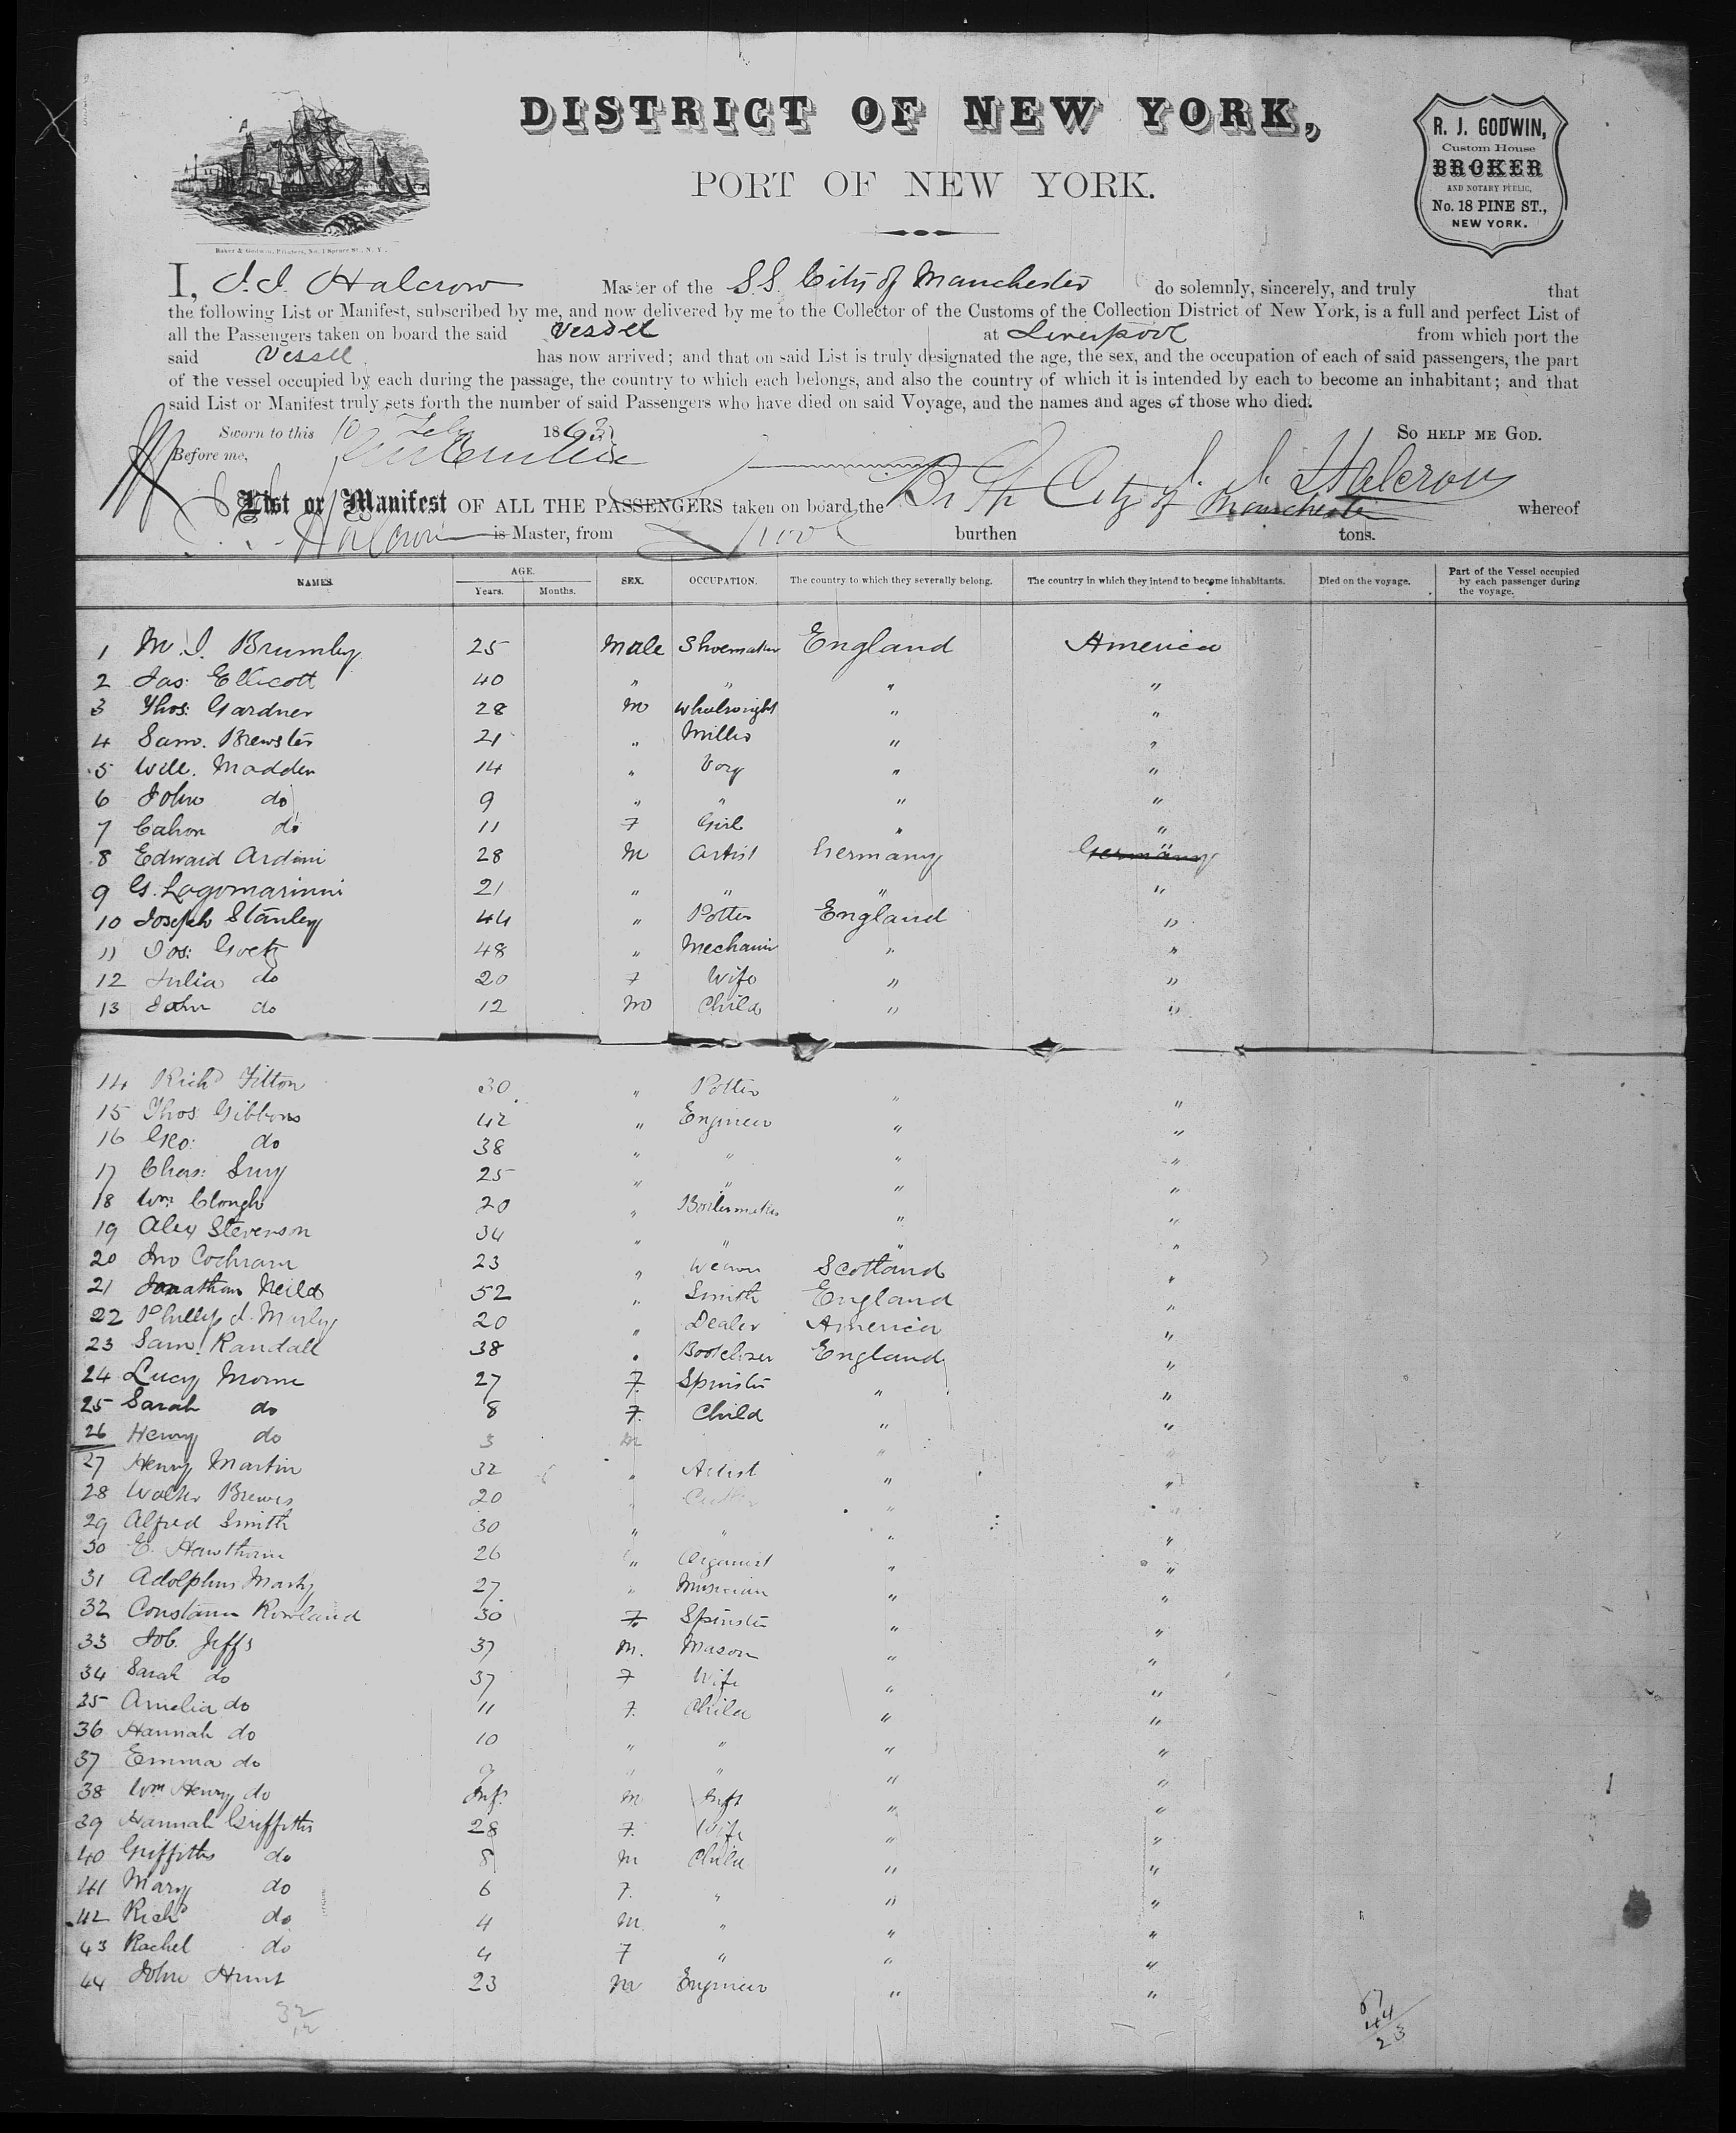 DISTRICT OF NEW YORK,
PORT OF NEW YORK.
R. J. GODWIN,
Custom House
BROKER
AND NOTARY PUBLIC,
No. 18 PINE ST.,
NEW YORK.
Baker & Godwin, Printers, No. 1 Spruce St., N. Y.
I, J. J. Halcrow Master of the S.S. City of Manchester do solemnly, sincerely, and truly that
the following List or Manifest, subscribed by me, and now delivered by me to the Collector of the Customs of the Collection District of New York, is a full and perfect List of
all the Passengers taken on board the said Vessel at Liverpool from which port the
said Vessel has now arrived; and that on said List is truly designated the age, the sex, and the occupation of each of said passengers, the part
of the vessel occupied by each during the passage, the country to which each belongs, and also the country of which it is intended by each to become an inhabitant; and that
said List or Manifest truly sets forth the number of said Passengers who have died on said Voyage, and the names and ages of those who died.
Sworn to this 10 Feby 1863 SO HELP ME GOD.
Before me, J. J. Halcrow
List or Manifest OF ALL THE PASSENGERS taken on board the Br City of Manchester whereof
Halcrow is Master, from L'pool burthen tons.
NAMES. AGE. Years. Months. SEX. OCCUPATION. The country to which they severally belong. The country in which they intend to become inhabitants. Died on the voyage. Part of the Vessel occupied by each passenger during the voyage.
1 M. J. Brumby 25 Male Shoemaker England America
2 Jas: Ellicott 40 " " " "
3 Thos: Gardner 28 M Wheelwright " "
4 Sam. Brewster 21 " Miller " "
5 Will. Madden 14 " Boy " "
6 John do 9 " " " "
7 Cahon do 11 F Girl " "
8 Edward Ardini 28 M Artist Germany Germany
9 G. Lagomarinni 21 " " " "
10 Joseph Stanley 44 " Potter England "
11 Jos: Goetz 48 " Mechanic " "
12 Julia do 20 F Wife " "
13 John do 12 M Child " "
14 Richd Fitton 30 " Potter " "
15 Thos Gibbons 42 " Engineer " "
16 Geo: do 38 " " " "
17 Chas: 25 " " " "
18 Wm Clough 20 " Boilermaker " "
19 Alex Stevenson 34 " " " "
20 Jno Cochram 23 " Weaver Scotland "
21 Jonathan Neild 52 " Smith England "
22 Phillip J. 20 " Dealer America "
23 Saml Randall 38 " England "
24 Lucy Morne 27 F Spinster " "
25 Sarah do 8 F. Child " "
26 Henry do 3 M " "
27 Henry Martin 32 " Artist " "
28 Walter Brewis 20 " " "
29 Alfred Smith 30 " " " "
30 E. Hawthorn 26 " Organist " "
31 Adolphus 27 " Musician " "
32 Constann Rowland 30 F Spinster " "
33 Job. Jeffs 37 M. Mason " "
34 Sarah do 37 F Wife " "
35 Amelia do 11 F. Child " "
36 Hannah do 10 " " " "
37 Emma do 9 " " " "
38 Wm Henry do Inft M Inft " "
39 Hannah Griffiths 28 F. Wife " "
40 Griffiths do 8 M Child " "
41 Mary do 6 F. " " "
42 Richd do 4 M " " "
43 Rachel do 4 F " " "
44 John Hunt 23 M Engineer " "
32
12
67
44
23